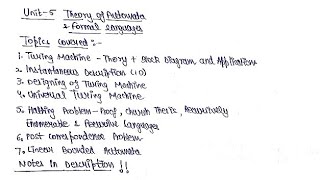 Unit-5 Theory of Automata
& Formal Languages
Topics Covered :-
1. Turing Machine - Theory + Block Diagram and Application
2. Instantaneous Description (ID)
3. Designing of Turing Machine
4. Universal Turing Machine
5. Halting Problem - Proof, Church Thesis, Recursively
Enumerable & Recursive Languages
6. Post Correspondence Problem
7. Linear Bounded Automata
Notes in Description !!